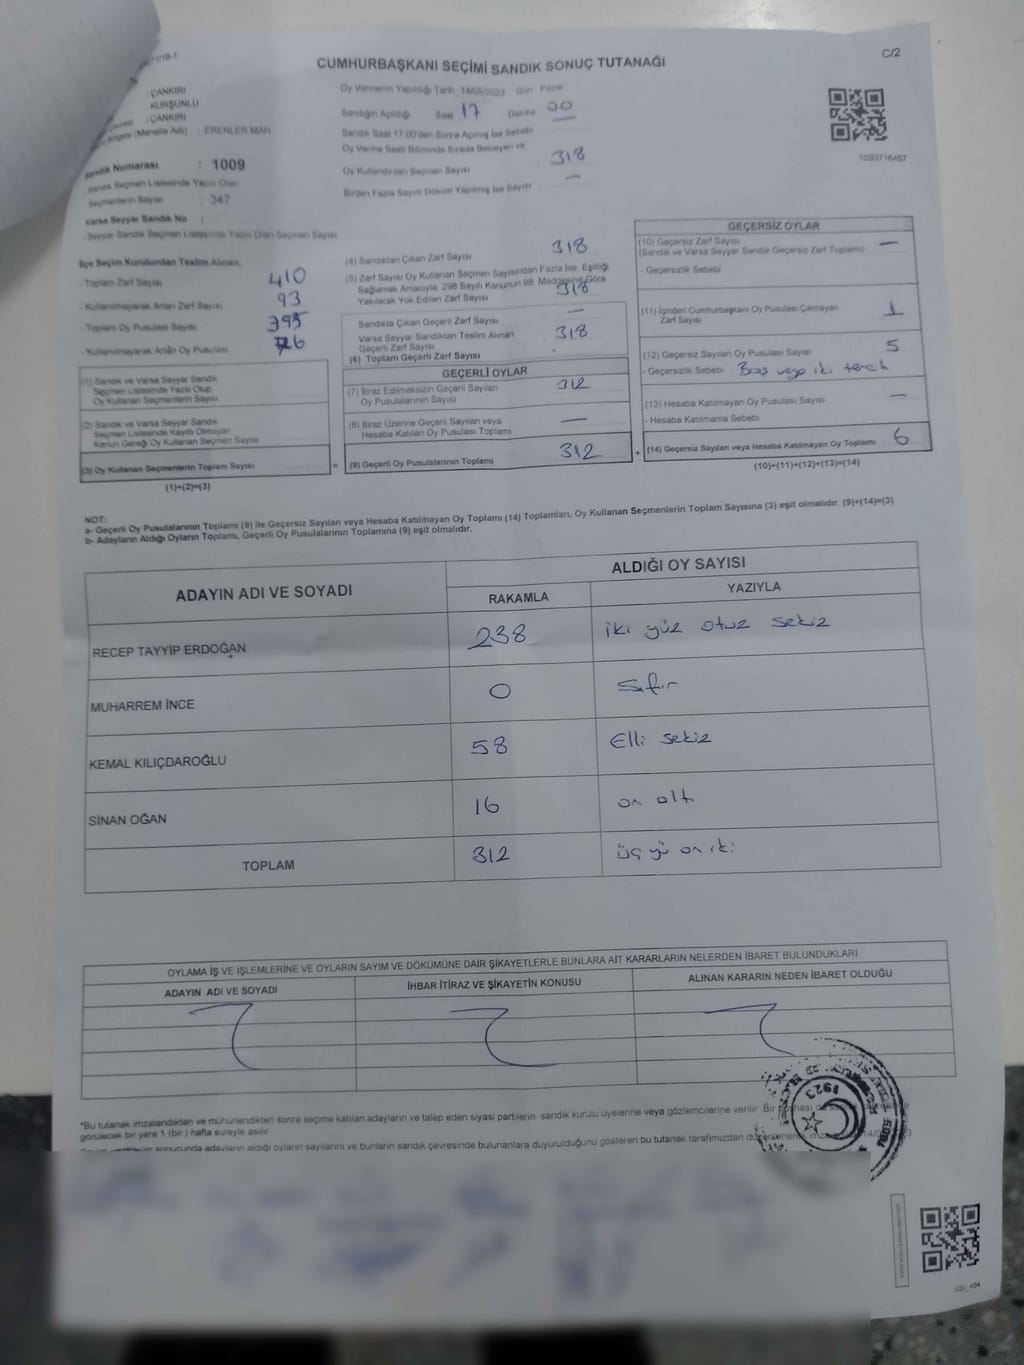 CUMHURBAŞKANI SEÇİMİ SANDIK SONUÇ TUTANAĞI
C/2
ÇANKIRI
KURŞUNLU
: ÇANKIRI
(Mahalle Adı) : ERENLER MAH
Sandık Numarası : 1009
Sandık Seçmen Listesinde Yazılı Olan
Seçmenlerin Sayısı : 347
Varsa Seyyar Sandık No :
- Seyyar Sandık Seçmen Listesinde Yazılı Olan Seçmen Sayısı
Oy Vermenin Yapıldığı Tarih : 14/05/2023 Gün Pazar
Sandığın Açıldığı Saat 17 Dakika 00
Sandık Saat 17:00'den Sonra Açılmış İse Sebebi —
Oy Verme Saati Bitiminde Sırada Bekleyen ve
Oy Kullandırılan Seçmen Sayısı 318
Birden Fazla Sayım Döküm Yapılmış İse Sayısı —
1093716457
İlçe Seçim Kurulundan Teslim Alınan;
- Toplam Zarf Sayısı 410
- Kullanılmayarak Artan Zarf Sayısı 93
- Toplam Oy Pusulası Sayısı 395
- Kullanılmayarak Artan Oy Pusulası
(1) Sandık ve Varsa Seyyar Sandık
Seçmen Listesinde Yazılı Olup
Oy Kullanan Seçmenlerin Sayısı
(2) Sandık ve Varsa Seyyar Sandık
Seçmen Listesinde Kayıtlı Olmayan
Kanun Gereği Oy Kullanan Seçmen Sayısı
(3) Oy Kullanan Seçmenlerin Toplam Sayısı
(1)+(2)=(3)
(4) Sandıktan Çıkan Zarf Sayısı 318
(5) Zarf Sayısı Oy Kullanan Seçmen Sayısından Fazla İse, Eşitliği
Sağlamak Amacıyla, 298 Sayılı Kanunun 98. Maddesine Göre
Yakılarak Yok Edilen Zarf Sayısı 318
Sandıkta Çıkan Geçerli Zarf Sayısı —
Varsa Seyyar Sandıktan Teslim Alınan
Geçerli Zarf Sayısı 318
(6) Toplam Geçerli Zarf Sayısı
GEÇERLİ OYLAR
(7) İtiraz Edilmeksizin Geçerli Sayılan
Oy Pusulalarının Sayısı 312
(8) İtiraz Üzerine Geçerli Sayılan veya
Hesaba Katılan Oy Pusulası Toplamı —
= (9) Geçerli Oy Pusulalarının Toplamı 312
GEÇERSİZ OYLAR
(10) Geçersiz Zarf Sayısı —
(Sandık ve Varsa Seyyar Sandık Geçersiz Zarf Toplamı)
- Geçersizlik Sebebi
(11) İçinden Cumhurbaşkanı Oy Pusulası Çıkmayan
Zarf Sayısı 1
(12) Geçersiz Sayılan Oy Pusulası Sayısı 5
- Geçersizlik Sebebi Boş veya iki tercih
(13) Hesaba Katılmayan Oy Pusulası Sayısı —
- Hesaba Katılmama Sebebi
+ (14) Geçersiz Sayılan veya Hesaba Katılmayan Oy Toplamı 6
(10)+(11)+(12)+(13)=(14)
NOT:
a- Geçerli Oy Pusulalarının Toplamı (9) ile Geçersiz Sayılan veya Hesaba Katılmayan Oy Toplamı (14) Toplamları, Oy Kullanan Seçmenlerin Toplam Sayısına (3) eşit olmalıdır. (9)+(14)=(3)
b- Adayların Aldığı Oyların Toplamı, Geçerli Oy Pusulalarının Toplamına (9) eşit olmalıdır.
ADAYIN ADI VE SOYADI
ALDIĞI OY SAYISI
RAKAMLA YAZIYLA
RECEP TAYYİP ERDOĞAN 238 iki yüz otuz sekiz
MUHARREM İNCE 0 Sıfır
KEMAL KILIÇDAROĞLU 58 Elli sekiz
SİNAN OĞAN 16 on altı
TOPLAM 312 üç yü on iki
OYLAMA İŞ VE İŞLEMLERİNE VE OYLARIN SAYIM VE DÖKÜMÜNE DAİR ŞİKAYETLERLE BUNLARA AİT KARARLARIN NELERDEN İBARET BULUNDUKLARI
ADAYIN ADI VE SOYADI İHBAR İTİRAZ VE ŞİKAYETİN KONUSU ALINAN KARARIN NEDEN İBARET OLDUĞU
*Bu tutanak imzalandıktan ve mühürlendikten sonra seçime katılan adayların ve talep eden siyasi partilerin sandık kurulu üyelerine veya gözlemcilerine verilir. Bir
görülecek bir yere 1 (bir) hafta süreyle asılır.
sonucunda adayların aldığı oyların sayılarını ve bunların sandık çevresinde bulunanlara duyurulduğunu gösteren bu tutanak tarafımızdan
1923